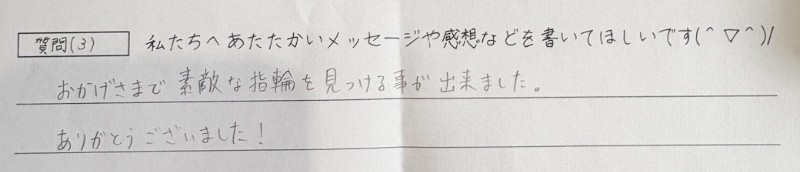 質問(3) 私たちへあたたかいメッセージや感想などを書いてほしいです(^▽^)/
おかげさまで素敵な指輪を見つける事が出来ました。
ありがとうございました！